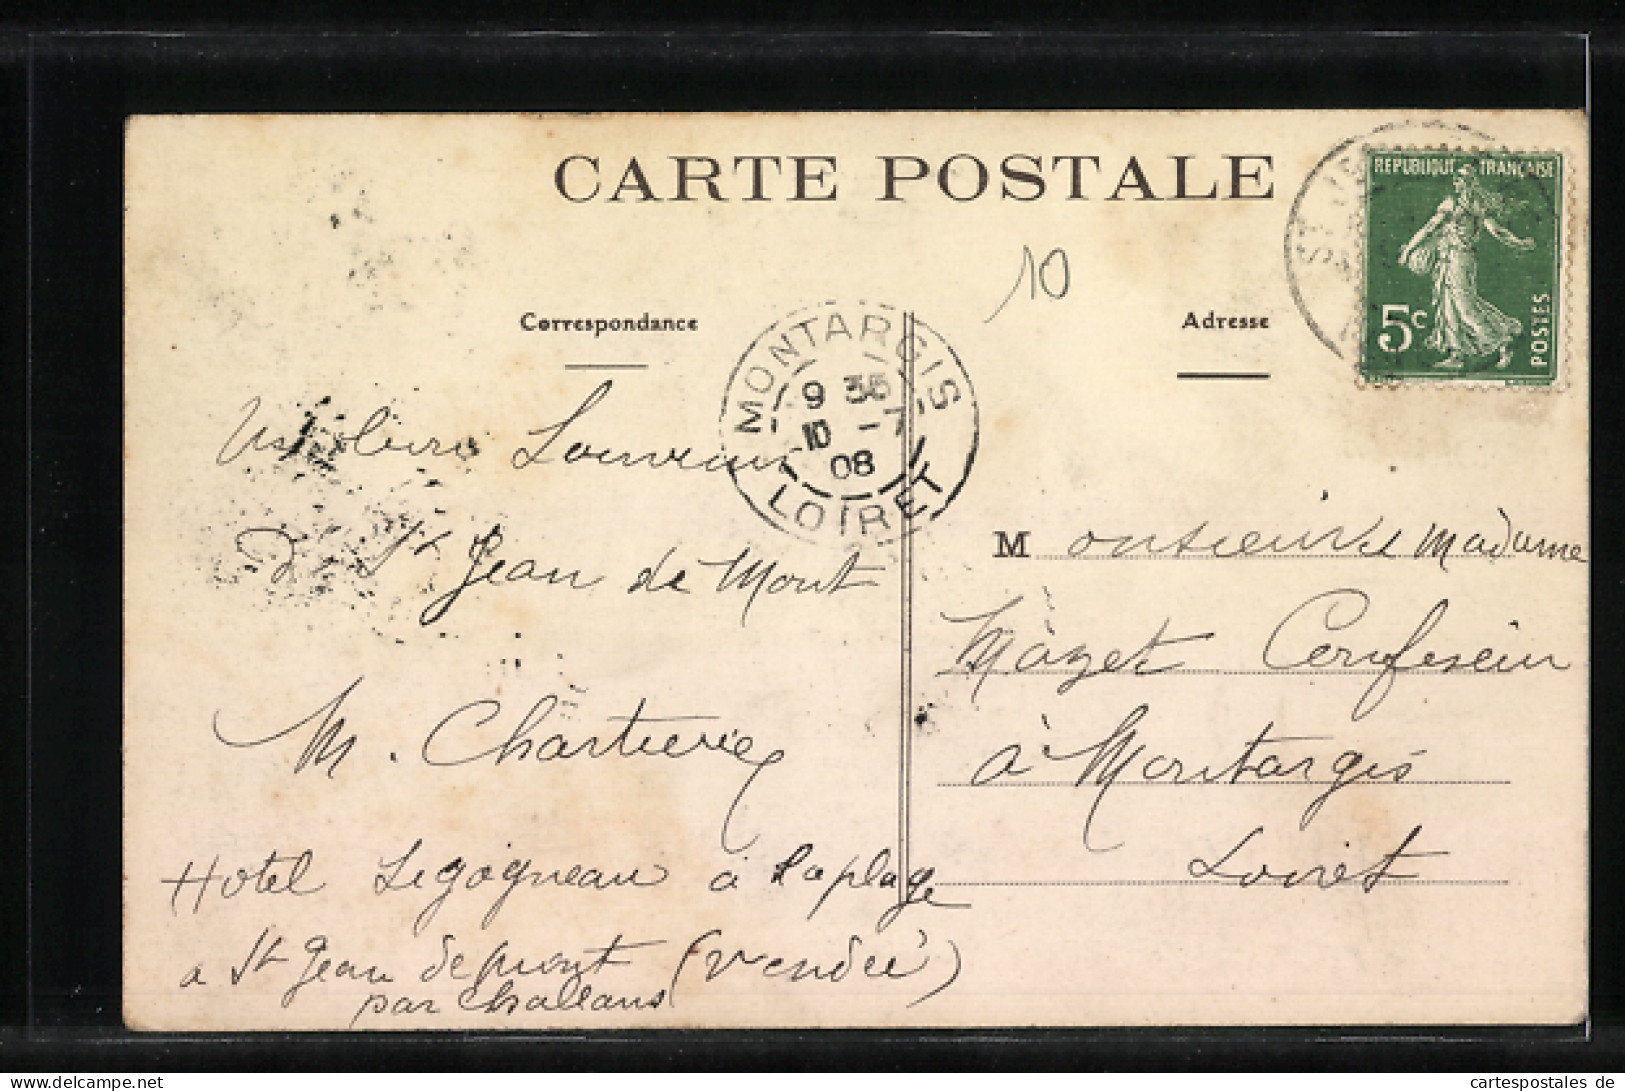 CARTE POSTALE
REPUBLIQUE FRANÇAISE
5c
POSTES
10
Correspondance
Adresse
MONTARGIS
9 35
10 - 7
08
LOIRET
ST JEAN
St Jean de Mont
M. Chartier
Hotel Legogneau à la plage
a St Jean de mont (Vendée)
par Challans
Monsieur et Madame
Mazet
à Montargis
Loiret
cartespostales de
www.cartespostales.eu